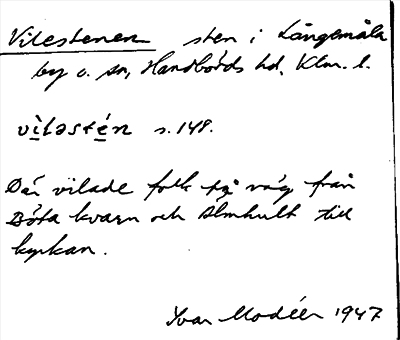 Vilestenen sten i Långemåla
by o. sn, Handbörds hd, Klm. l.
vìləstén s. 148.
Där vilade folk på väg från
Böta kvarn och Älmhult till
kyrkan.
Ivar Modéer 1947